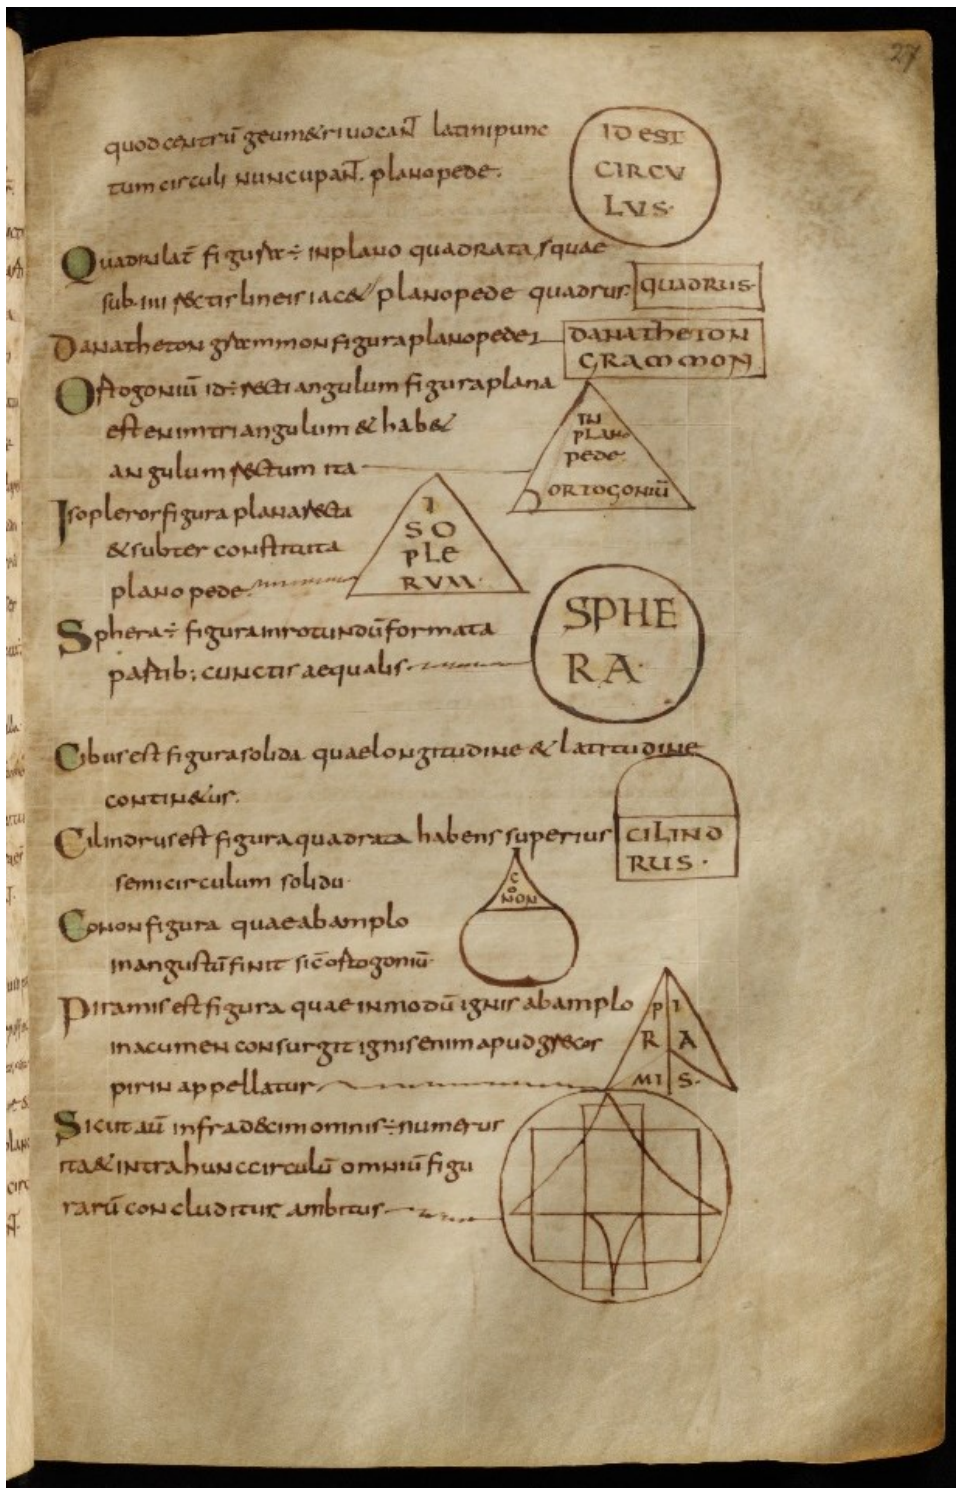 27
quod centrū geum&ri uocaɴ̄t latini punc
tum circuli nuncupaɴ̄t. planopede.
ID EST
CIRCU
LUS·
Quadrilat̄ figura ÷ inplano quadrata, squae
sub·iiii rectis lineis iac& planopede quadrus·
QUADRUS·
Danatheton grammon figura planopede
DANATHETON
GRAMMON
Ortogoniū id÷ recti angulum figura plana
est enim triangulum & hab&
angulum rectum ita
IN
PLAN
pede·
ORTOGONIŪ
Isopleros figura plana recta
& subter constituta
planopede·
I
SO
PLE
RUM·
Sphera ÷ figura inrotundū formata
partib; cunctis aequalis
SPHE
RA·
Cibus est figura solida quae longitudine & latitudine
contin&ur.
Cilindrus est figura quadrata habens superius
semicirculum solidu·
CILIND
RUS·
Conon figura quae ab amplo
in angustū finit sic̄ ortogoniū·
C
O
NON
Piramis est figura quae inmodū ignis ab amplo
inacumen consurgit ignis enim apud grecos
pirin appellatur
PI
RA
MIS·
Sicut aū infra decim omnis ÷ numerus
ita & intra hunc circulū omniū figu
rarū concluditur ambitus